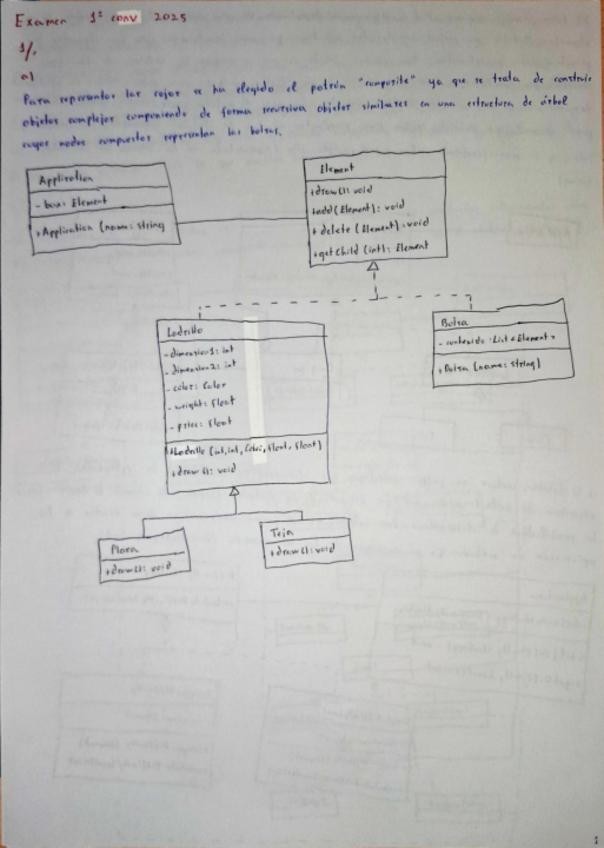 Examen 1ª conv 2025
1/.
a)
Para representar las cajas se ha elegido el patrón "composite" ya que se trata de construir
objetos complejos componiendo de forma recursiva objetos similares en una estructura de árbol
cuyos nodos compuestos representan las bolsas.
Application
- box: Element
+Application (name: string
Element
+draw(): void
+add(Element): void
+ delete (Element): void
+getChild (int): Element
Ladrillo
- dimension1: int
- dimension2: int
- color: Color
- weight: float
- float
+Ladrillo (int, int, Color, float, float)
+draw(): void
Bolsa
- contenido: List<Element>
+Bolsa (name: string)
+draw(): void
Teja
+draw(): void
1